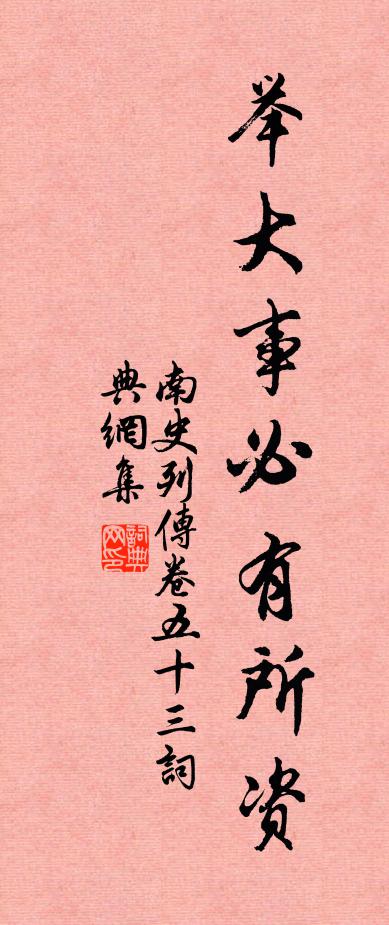 举大事必有所资
南史列傳卷五十三詞
典網集
詞典
网印